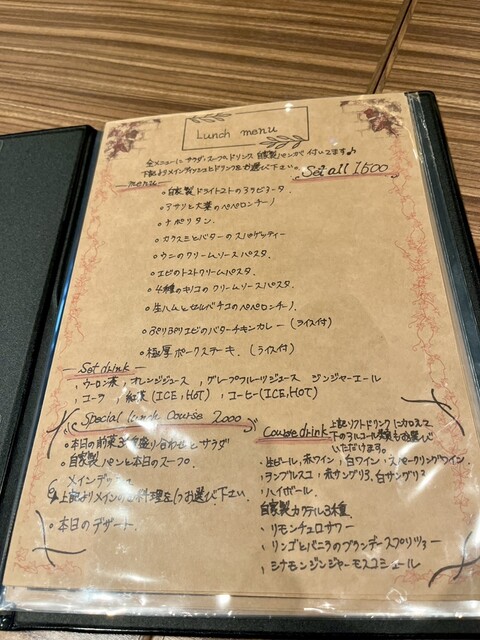 Lunch menu
全メニューに サラダ・スープ&ドリンク 自家製パンが付いてます♪
下記よりメインディッシュとドリンクをお選び下さい。 Set all 1500
menu
○自家製ドライトマトのアラビアータ
○アサリと大葉のペペロンチーノ
○ナポリタン
○カラスミとバターのスパゲッティー
○ウニのクリームソースパスタ
○エビのトマトクリームパスタ.
○4種のキノコのクリームソースパスタ
○生ハムとセルバチコのペペロンチーノ.
○ぷりぷりエビのバターチキンカレー (ライス付)
○極厚ポークステーキ. (ライス付)
Set drink
,ウーロン茶 ,オレンジジュース ,グレープフルーツジュース ジンジャーエール
,コーラ 紅茶(ICE,HOT) ,コーヒー(ICE,HOT)
Special lunch Course 2000
○本日の前菜3種盛り合わせとサラダ
○自家製パンと本日のスープ.
メインディッシュ
上記よりメインのお料理を1つお選び下さい
○本日のデザート.
Course drink 上記ソフトドリンクに加えて
下のアルコール類もお選び
いただけます。
・生ビール,赤ワイン ,白ワイン スパークリングワイン
,ランブルスコ ,赤サングリア,白サングリア
,ハイボール
自家製カクテル3種
・リモンチェロサワー
・リンゴとバニラのブランデースプリッツァー
・シナモンジンジャーモスコミュール